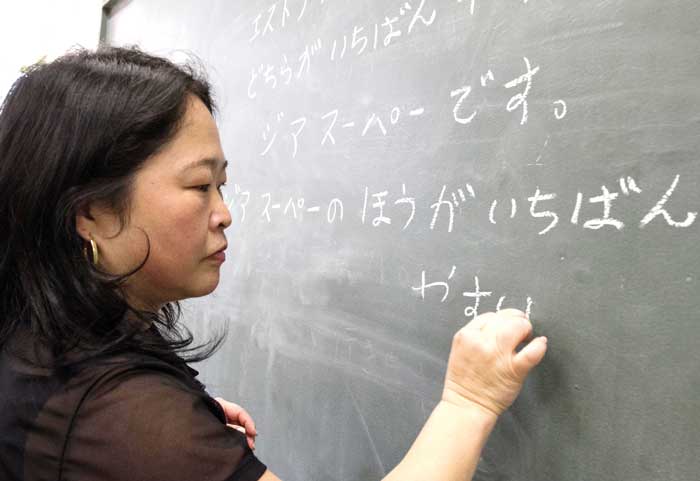 エスト
どちらが いちばん
ジアスーパー です。
ジアスーパーの ほうが いちばん
やすい